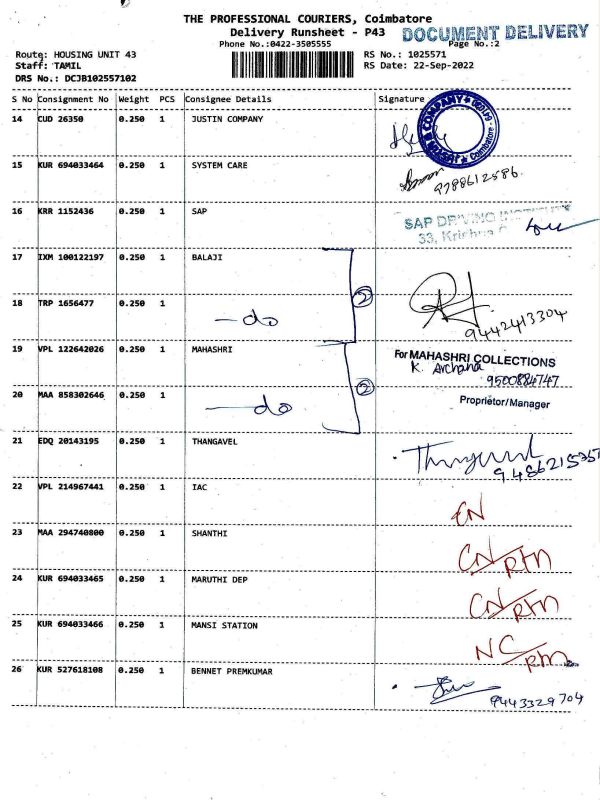 THE PROFESSIONAL COURIERS, Coimbatore
Delivery Runsheet - P43 DOCUMENT DELIVERY
Phone No.:0422-3505555 Page No.:2
Route: HOUSING UNIT 43 RS No.: 1025571
Staff: TAMIL RS Date: 22-Sep-2022
DRS No.: DCJB102557102
S No Consignment No Weight PCS Consignee Details Signature
14 CUD 26350 0.250 1 JUSTIN COMPANY
COMPANY Coimbatore
15 KUR 694033464 0.250 1 SYSTEM CARE
9788612586
16 KRR 1152436 0.250 1 SAP
SAP DRIVING
33, Krishna
17 IXM 100122197 0.250 1 BALAJI
18 TRP 1656477 0.250 1 —do 2
9442413304
19 VPL 122642026 0.250 1 MAHASHRI For MAHASHRI COLLECTIONS
K. Archana
9500884747
20 MAA 858302646 0.250 1 —do 2 Proprietor/Manager
21 EDQ 20143195 0.250 1 THANGAVEL
22 VPL 214967441 0.250 1 IAC
23 MAA 294740800 0.250 1 SHANTHI CN/RTN
24 KUR 694033465 0.250 1 MARUTHI DEP CN/RTN
25 KUR 694033466 0.250 1 MANSI STATION NC/RTN
26 KUR 527618108 0.250 1 BENNET PREMKUMAR
9443329704